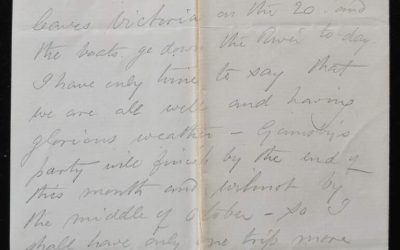 leaves Victoria on the 20. and
the boats go down the River to-day
I have only time to say that
we are all well and having
glorious weather - Gamsby's
party will finish by the end of
this month and Wilmot by
the middle of October - so I
shall have only one trip more